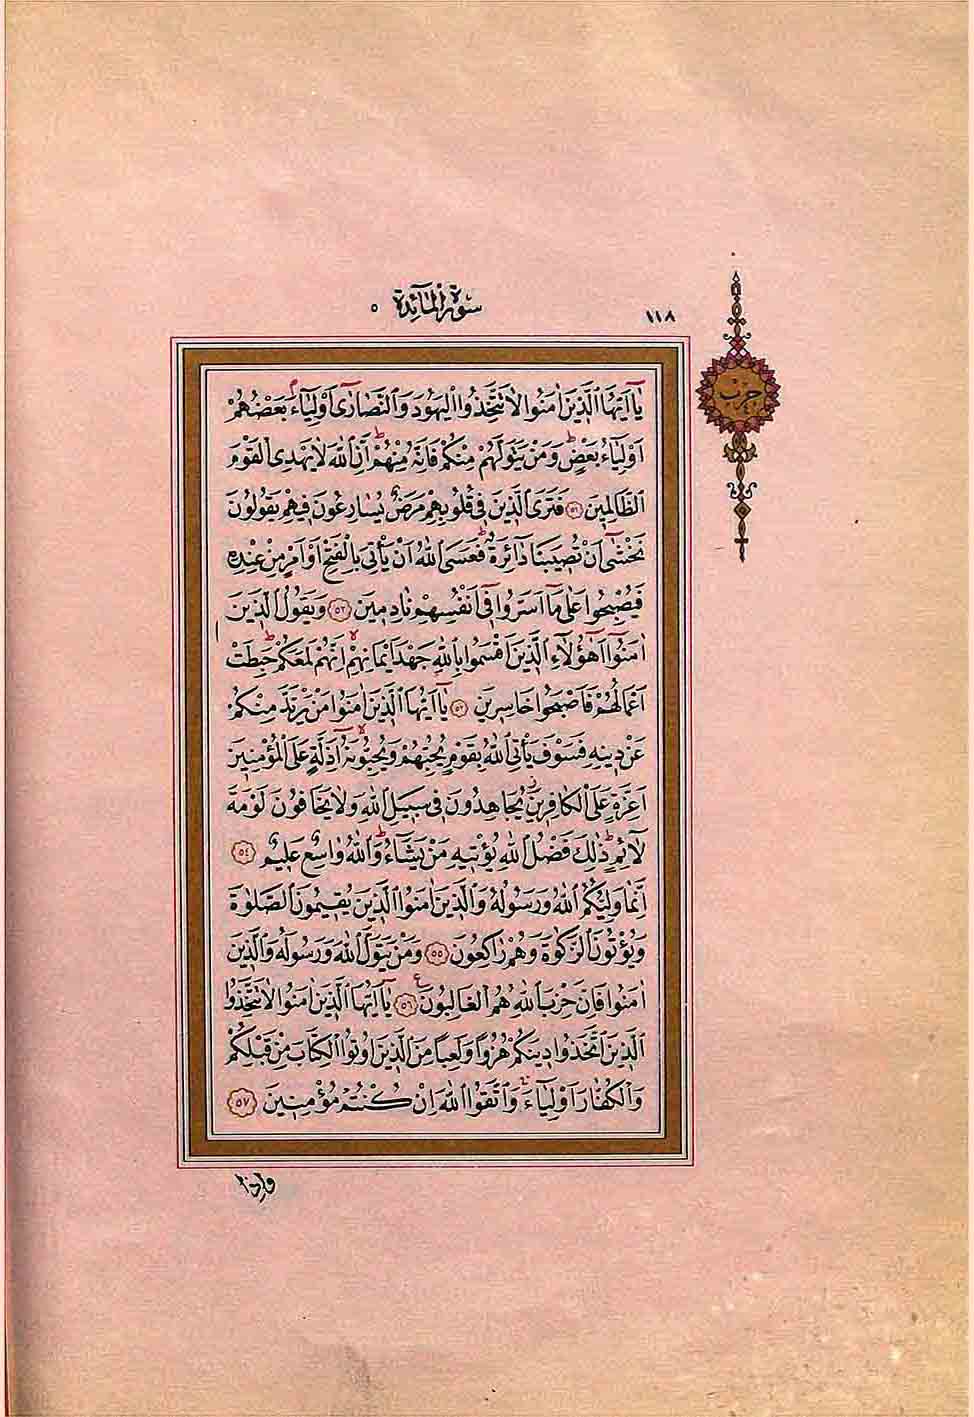 ١١٨
سُورَةُ الْمَآئِدَةِ ٥
حزب
يَٓا اَيُّهَا الَّذ۪ينَ اٰمَنُوا لَا تَتَّخِذُوا الْيَهُودَ وَالنَّصَارٰٓى اَوْلِيَٓاءَۢ بَعْضُهُمْ
اَوْلِيَٓاءُ بَعْضٍۜ وَمَنْ يَتَوَلَّهُمْ مِنْكُمْ فَاِنَّهُ مِنْهُمْۜ اِنَّ اللّٰهَ لَا يَهْدِي الْقَوْمَ
الظَّالِم۪ينَ ﴿٥١﴾ فَتَرَى الَّذ۪ينَ ف۪ي قُلُوبِهِمْ مَرَضٌ يُسَارِعُونَ ف۪يهِمْ يَقُولُونَ
نَخْشٰٓى اَنْ تُص۪يبَنَا دَٓائِرَةٌۜ فَعَسَى اللّٰهُ اَنْ يَأْتِيَ بِالْفَتْحِ اَوْ اَمْرٍ مِنْ عِنْدِه۪
فَيُصْبِحُوا عَلٰى مَٓا اَسَرُّوا ف۪ٓي اَنْفُسِهِمْ نَادِم۪ينَ ﴿٥٢﴾ وَيَقُولُ الَّذ۪ينَ
اٰمَنُٓوا اَهٰٓؤُ۬لَٓاءِ الَّذ۪ينَ اَقْسَمُوا بِاللّٰهِ جَهْدَ اَيْمَانِهِمْۙ اِنَّهُمْ لَمَعَكُمْۜ حَبِطَتْ
اَعْمَالُهُمْ فَاَصْبَحُوا خَاسِر۪ينَ ﴿٥٣﴾ يَٓا اَيُّهَا الَّذ۪ينَ اٰمَنُوا مَنْ يَرْتَدَّ مِنْكُمْ
عَنْ د۪ينِه۪ فَسَوْفَ يَأْتِي اللّٰهُ بِقَوْمٍ يُحِبُّهُمْ وَيُحِبُّونَهُٓۙ اَذِلَّةٍ عَلَى الْمُؤْمِن۪ينَ
اَعِزَّةٍ عَلَى الْكَافِر۪ينَۘ يُجَاهِدُونَ ف۪ي سَب۪يلِ اللّٰهِ وَلَا يَخَافُونَ لَوْمَةَ
لَٓائِمٍۜ ذٰلِكَ فَضْلُ اللّٰهِ يُؤْت۪يهِ مَنْ يَشَٓاءُۜ وَاللّٰهُ وَاسِعٌ عَل۪يمٌ ﴿٥٤﴾
اِنَّمَا وَلِيُّكُمُ اللّٰهُ وَرَسُولُهُ وَالَّذ۪ينَ اٰمَنُوا الَّذ۪ينَ يُق۪يمُونَ الصَّلٰوةَ
وَيُؤْتُونَ الزَّكٰوةَ وَهُمْ رَاكِعُونَ ﴿٥٥﴾ وَمَنْ يَتَوَلَّ اللّٰهَ وَرَسُولَهُ وَالَّذ۪ينَ
اٰمَنُوا فَاِنَّ حِزْبَ اللّٰهِ هُمُ الْغَالِبُونَ۟ ﴿٥٦﴾ يَٓا اَيُّهَا الَّذ۪ينَ اٰمَنُوا لَا تَتَّخِذُوا
الَّذ۪ينَ اتَّخَذُوا د۪ينَكُمْ هُزُوًا وَلَعِبًا مِنَ الَّذ۪ينَ اُو۫تُوا الْكِتَابَ مِنْ قَبْلِكُمْ
وَالْكُفَّارَ اَوْلِيَٓاءَۚ وَاتَّقُوا اللّٰهَ اِنْ كُنْتُمْ مُؤْمِن۪ينَ ﴿٥٧﴾
وَاِذَا